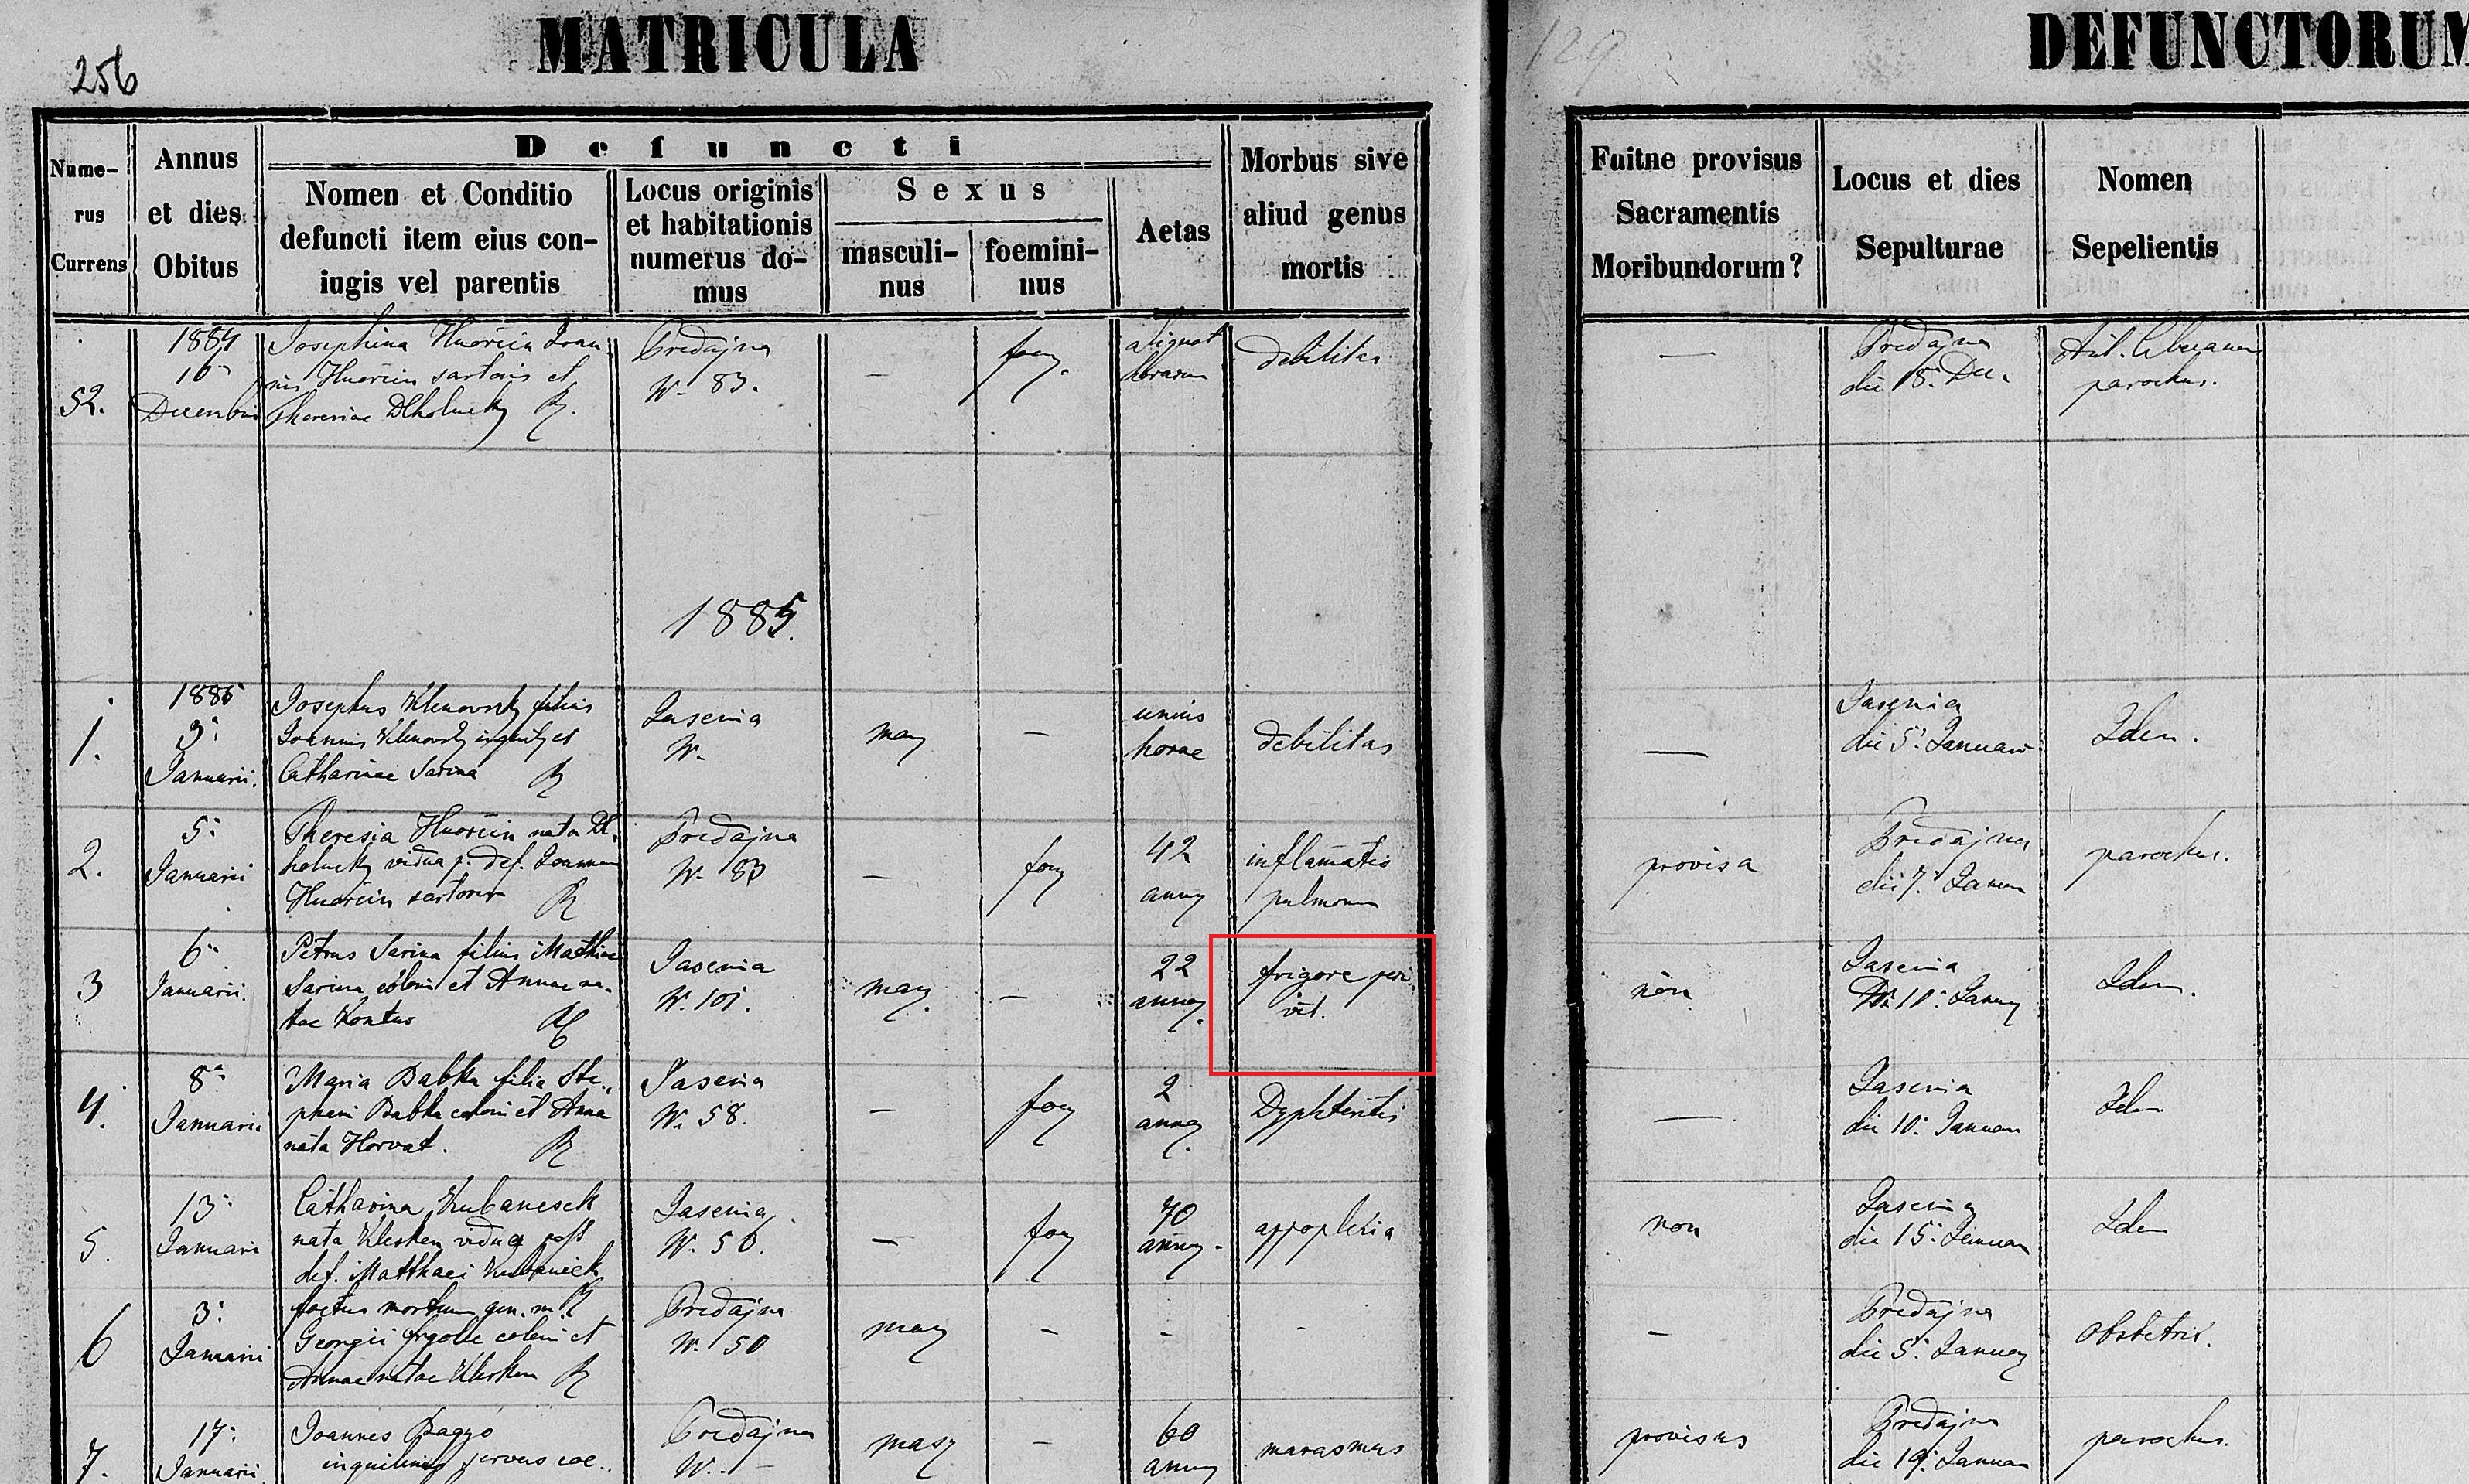 256
MATRICULA
129
DEFUNCTORUM
Nume-
rus
Currens
Annus
et dies
Obitus
Defuncti
Nomen et Conditio
defuncti item eius con-
iugis vel parentis
Locus originis
et habitationis
numerus do-
mus
Sexus
masculi-
nus
foemini-
nus
Aetas
Morbus sive
aliud genus
mortis
Fuitne provisus
Sacramentis
Moribundorum?
Locus et dies
Sepulturae
Nomen
Sepelientis
52.
1884
16
Decembris
Josephina
sartoris et
Theresiae Dlholucky R.
Predajna
N. 83.
—
foem.
aliquot
horarum
debilitas
—
Predajna
die 18. Dec.
Ant.
parochus.
1885.
1.
1885
3:
Januarii.
Josephus Klenovsky filius
Joannis Klenovsky et
Catharinae Sarina R
Jasenia
N.
mas
—
unius
horae
debilitas
—
Jasenia
die 5. Januar
Idem.
2.
5:
Januarii
Theresia nata Dl-
holucky vidua p. def. Joannem
sartorem R
Predajna
N. 83
—
foem
42
annor
inflamatio
pulmonum
provisa
Predajna
die 7. Januar
parochus.
3
6
Januarii.
Petrus Sarina filius Mathiae
Sarina coloni et Annae na-
tae Kontur RC
Jasenia
N. 101.
mas.
—
22
annor.
frigore peri-
vit.
non
Jasenia
Januar
Idem.
4.
8
Januarii
Maria Babka filia Ste-
phani Babka coloni et Anna
nata Horvat. R
Jasenia
N. 58.
—
foem
2
annor.
Dyphteritis
—
Jasenia
die 10. Januar
Idem
5.
13
Januarii
Catharina Kubanesek
nata Klesken vidua post
def. Matthaei Kubanesek
R
Jasenia
N. 56.
—
foem
70
annor.
appoplexia
non
Jasenia
die 15. Januar
Idem
6
3:
Januarii
foetus mortuus gen. m.
Georgii coloni et
Annae natae Klesken R
Predajna
N. 50
mas
—
-
-
—
Predajna
die 5. Januar
obstetrix.
7.
17:
Januarii
Joannes Bagyo
inquilinus servus
Predajna
N. -
mas
—
60
annor
marasmus
provisus
Predajna
die 19. Januar
parochus.